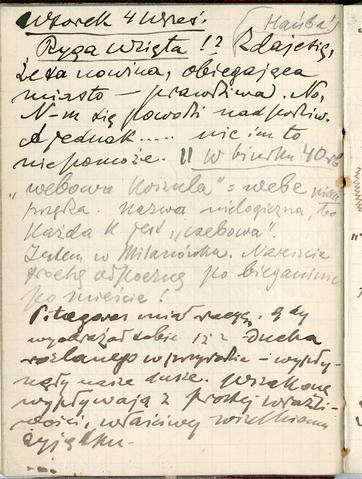 Wtorek 4 wrześ.
(Hańba!)
Ryga wzięta!? Zdaje się,
że ta nowina, obiegająca
miasto – prawdziwa. No,
N-m się powodzi nad podziw.
A jednak..... nic im to
nie pomoże. || W biurku 40 rb
"webowa koszula" = webe
przędza. Nazwa nielogiczna, bo
każda k. jest „webowa".
Jestem w Milanówku. Nareszcie
trochę odpocznę po bieganiu
po mieście!
Pitagoras miał rację, gdy
wyobrażał sobie iż z Ducha
rozlanego w przyrodzie – wypły-
nęły nasze dusze.
wypływają z prostej wrażli-
wości, właściwej wielkiemu